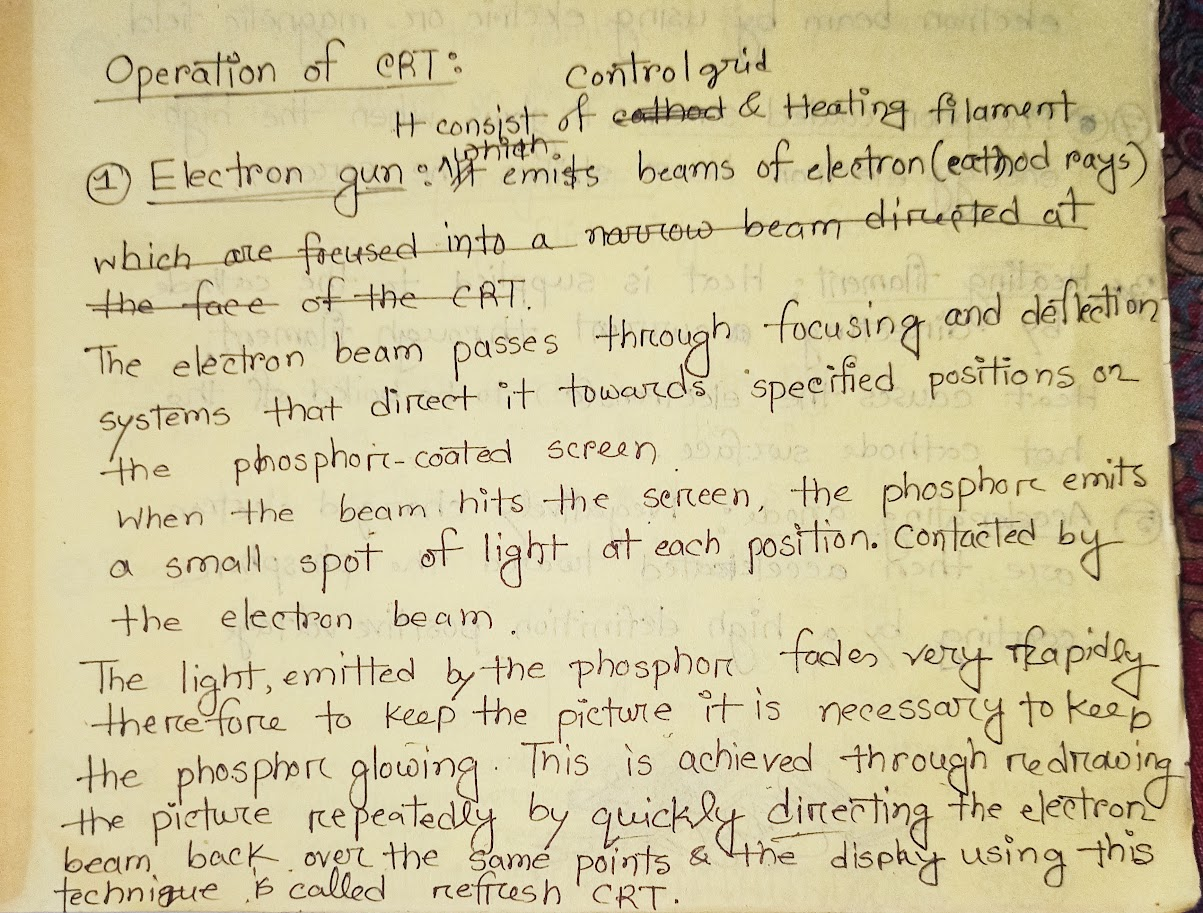 Operation of CRT:
Control grid
It consist of cathod & Heating filament
which
① Electron gun: It emits beams of electron (cathod rays)
which are focused into a narrow beam directed at
the face of the CRT.
The electron beam passes through focusing and deflection
systems that direct it towards specified positions on
the phosphor-coated screen.
When the beam hits the screen, the phosphor emits
a small spot of light at each position. Contacted by
the electron beam.
The light, emitted by the phosphor fades very Rapidly
therefore to keep the picture it is necessary to keep
the phosphor glowing. This is achieved through redrawing
the picture repeatedly by quickly directing the electron
beam back over the same points & the display using this
technique is called refresh CRT.